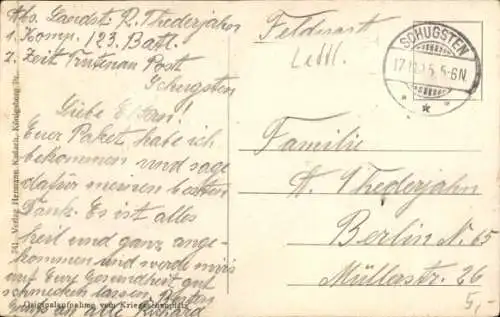 Abs. Landst. R. Thederjahn
1. Komp. 123. Batl.
z. Zeit Trutenau Post
Schugsten
Liebe Eltern!
Euer Paket habe ich
bekommen und sage
dafür meinen besten
Dank. Es ist alles
heil und ganz ange-
kommen und werde mir
auf Eure Gesundheit gut
schmecken lassen.
Gruß an alle Richard
Feldpost
SCHUGSTEN
5-6N
Familie
A. Thederjahn
Berlin N. 65
Müllerstr. 26
5,-
Verlag Hermann
Königsberg Pr.
Originalaufnahme vom Kriegsschauplatz